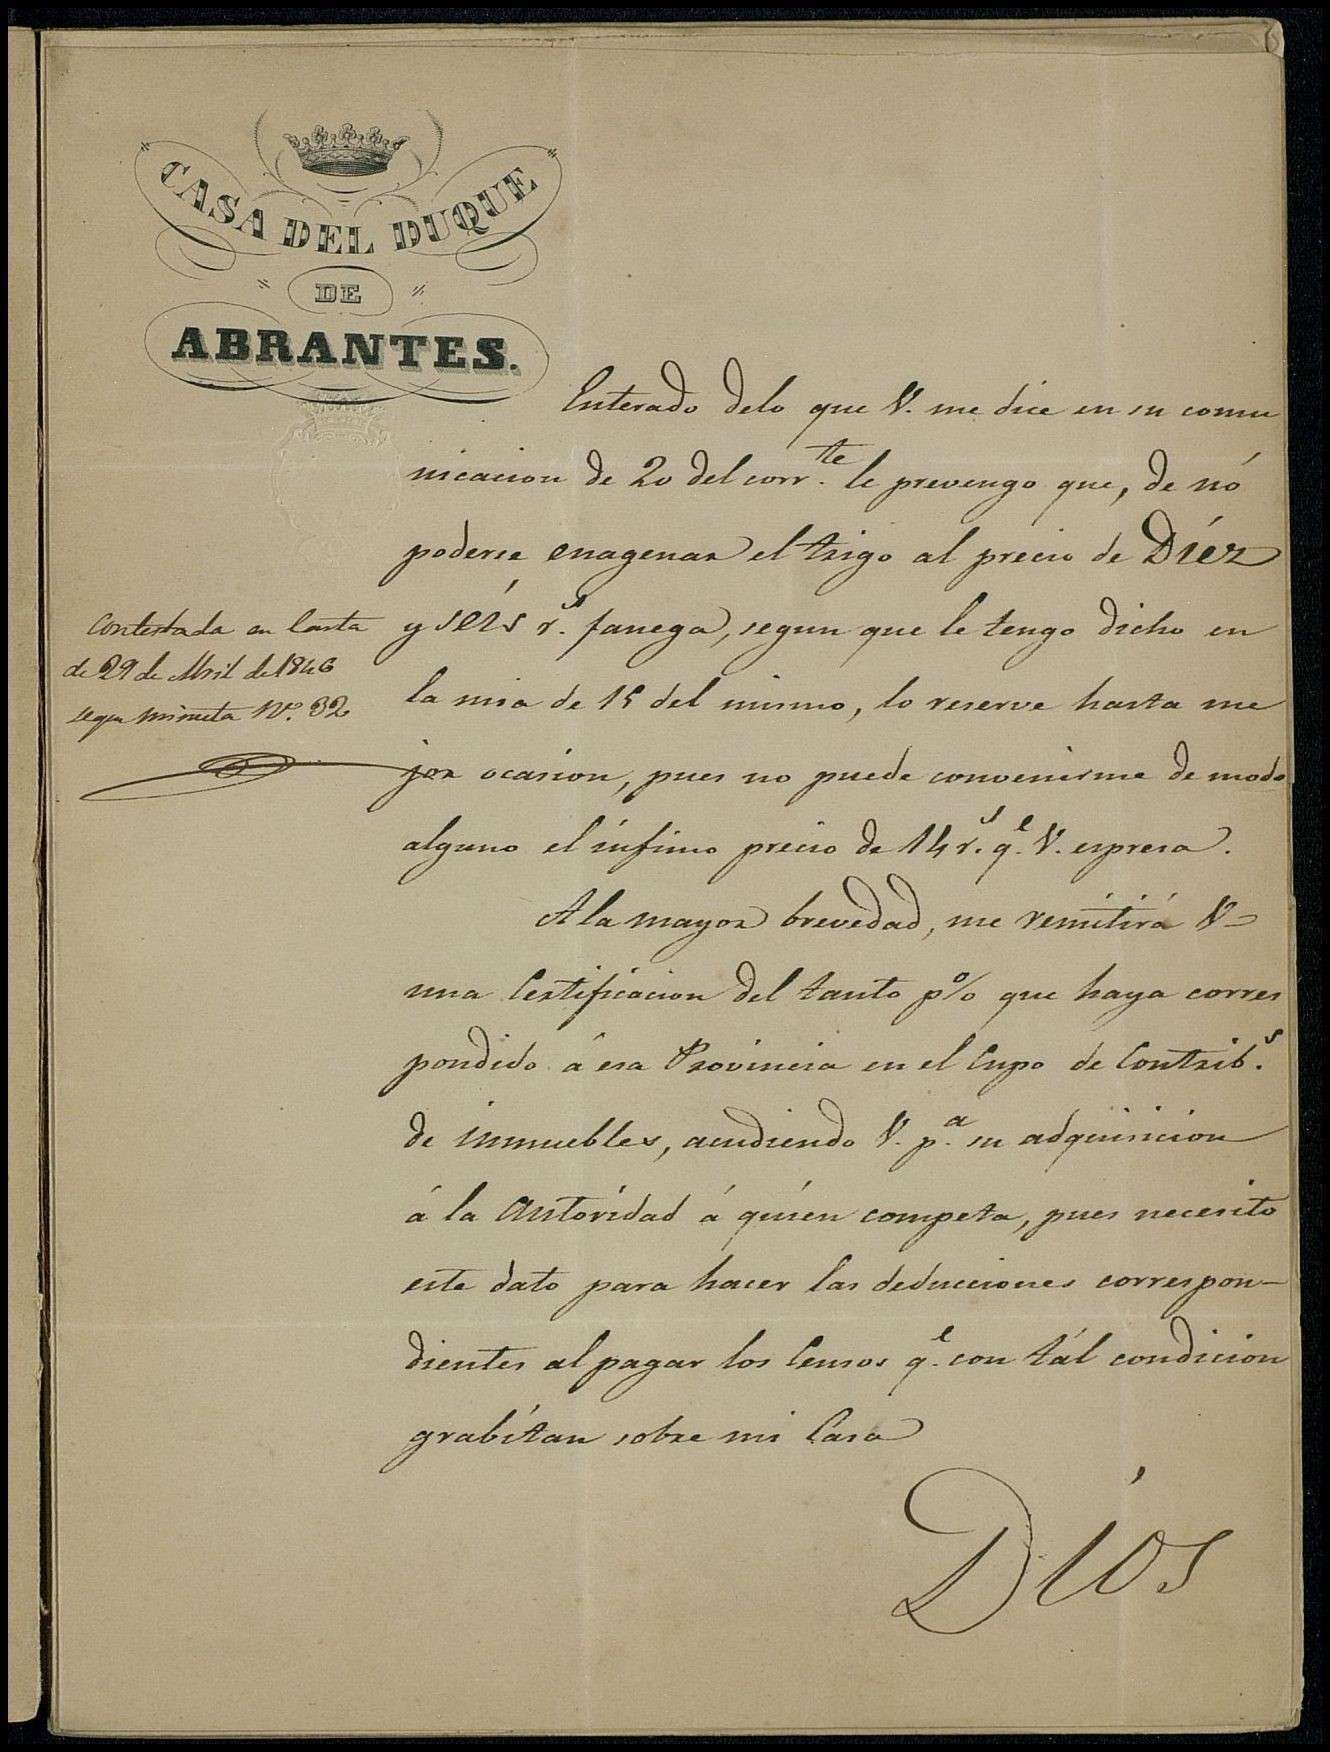 CASA DEL DUQUE
DE
ABRANTES.
Enterado delo que V. me dice en su comu
nicacion de 20 del corr.te le prevengo que, de nó
poderse enagenar el trigo al precio de Diéz
y séis r.s fanega, segun que le tengo dicho en
la mia de 15 del mismo, lo reserve hasta me
jor ocasion, pues no puede convenirme de modo
alguno el ínfimo precio de 14 r.s q.e V. espresa.
A la mayor brevedad, me remitirá V=
una Certificacion del tanto p% que haya corres
pondido á esa Provincia en el Cupo de Contrib.s
de inmuebles, acudiendo V. p.a su adquisicion
á la Autoridad á quien competa, pues necesito
este dato para hacer las deducciones correspon-
dientes al pagar los Censos q.e con tál condicion
grabítan sobre mi Casa
Dios
Contestada en Carta
de 29 de Abril de 1846
segun minuta N.o 32